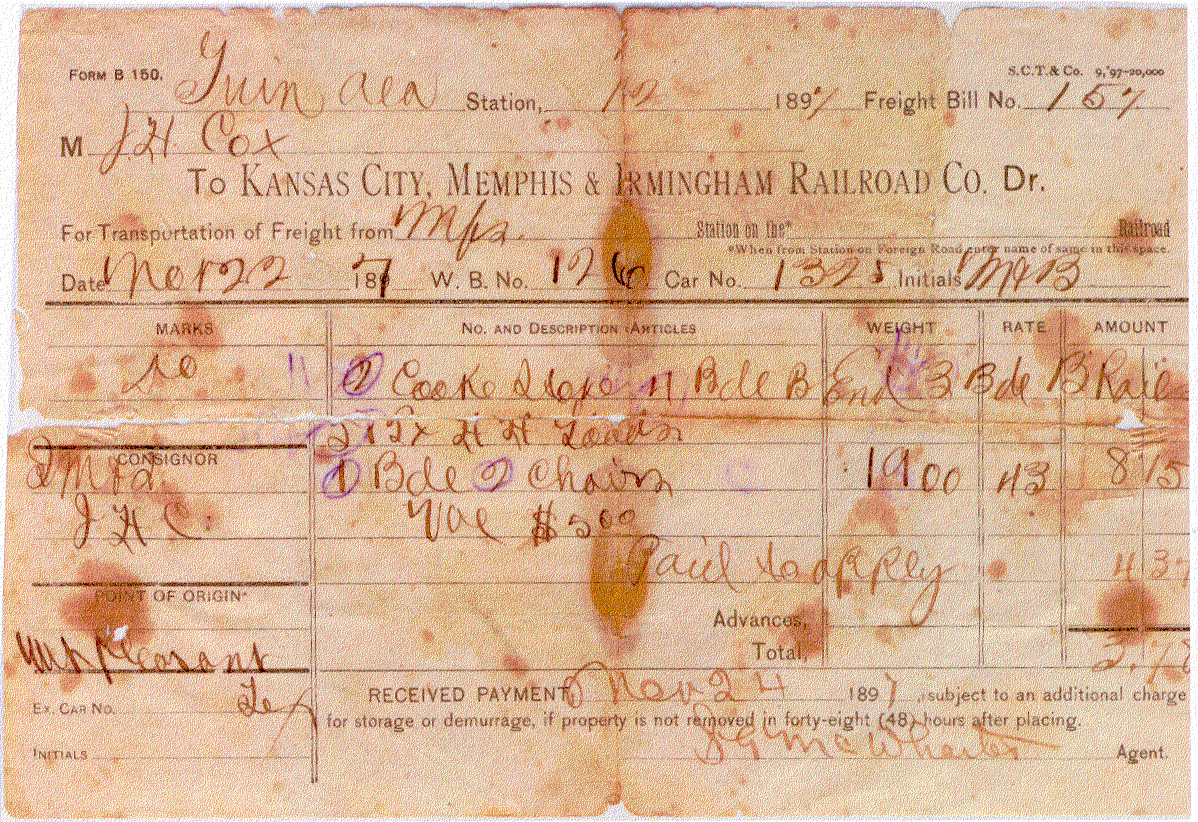 FORM B 150.
S.C.T. & Co. 9,'97-20,000
Guin, Ala Station, 1897 Freight Bill No. 157
M J.H. Cox
To KANSAS CITY, MEMPHIS & IRMINGHAM RAILROAD CO. Dr.
For Transportation of Freight from Mfs. Station on the* Railroad
*When from Station on Foreign Road enter name of same in this space.
Date Nov 22 1897 W. B. No. 126 Car No. 1325 Initials
MARKS NO. AND DESCRIPTION ARTICLES WEIGHT RATE AMOUNT
Cooke Bdle B End 3 Bdle B Rails
2 Bx H H Goods
CONSIGNOR
1 Bdle 2 Chairs 1900 43 8 15
J H C. Val $5.00
Paid to apply 4 37
POINT OF ORIGIN*
Advances,
Mt Pleasant Total, 3.78
Tex
RECEIVED PAYMENT, Nov 24 1897, subject to an additional charge
EX. CAR NO.
for storage or demurrage, if property is not removed in forty-eight (48) hours after placing.
INITIALS McWhorter Agent.